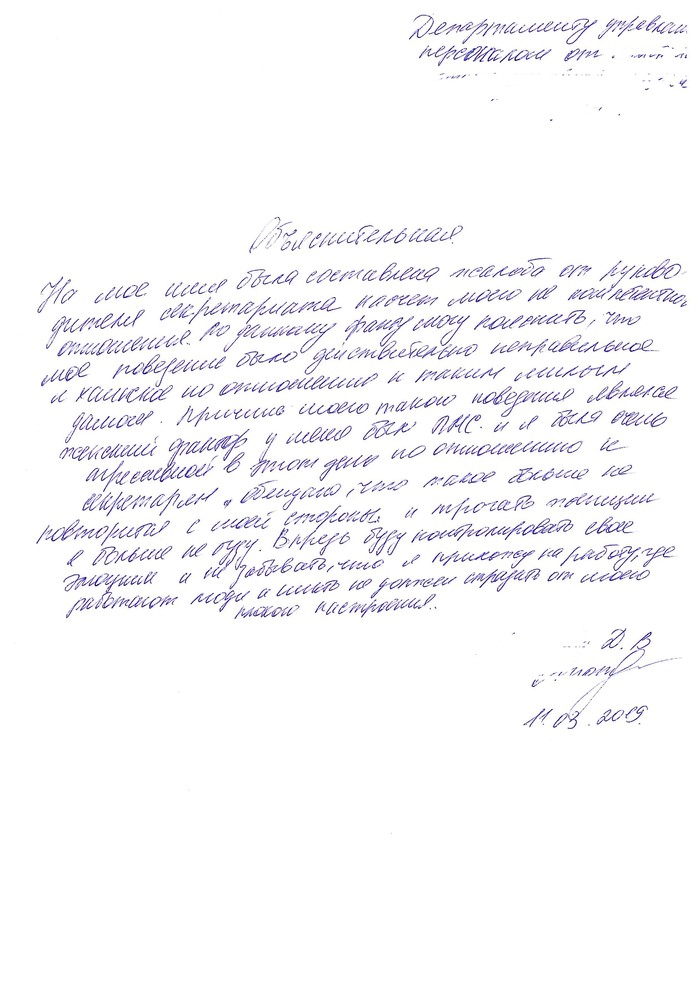 Департаменту управлен
персоналом от
Объяснительная
На мое имя была составлена жалоба от руково-
дителя секретариата насчет моего не компетентного
отношения. По данному факту могу пояснить, что
мое поведение было действительно неправильное
и хамское по отношению к таким милым
дамам. Причина моего такого поведения является
женский фактор у меня был ПМС. и я была очень
агрессивной в этот день по отношению к
секретарям, обещаю, что такое больше не
повторится с моей стороны и трогать
я больше не буду. Впредь буду контролировать свое
эмоции и не забывать, что я прихожу на работу, где
работают люди и никто не должен страдать от моего
плохого настроения..
Д. В
11.03.2019.